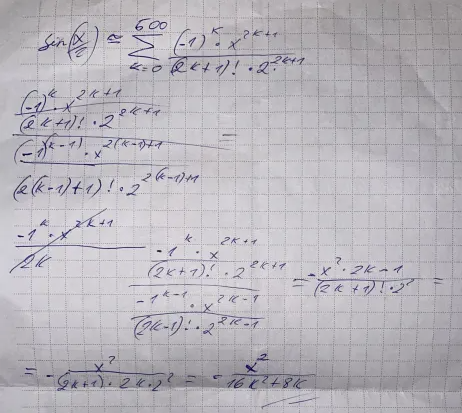 sin(x/2) ≈ 500 Σ k=0 (-1)^k · x^(2k+1) / (2k+1)! · 2^(2k+1)
(-1)^k · x^(2k+1)
(2k+1)! · 2^(2k+1)
(-1)^(k-1) · x^(2(k-1)+1) =
(2(k-1)+1)! · 2^(2(k-1)+1)
-1^k · x^(2k+1) / 2k
-1^k · x^(2k+1) / (2k+1)! · 2^(2k+1) / -1^(k-1) · x^(2k-1) / (2k-1)! · 2^(2k-1) = -x² · 2k-1 / (2k+1)! · 2² =
= - x² / (2k+1) · 2k · 2² = - x² / 16k²+8k